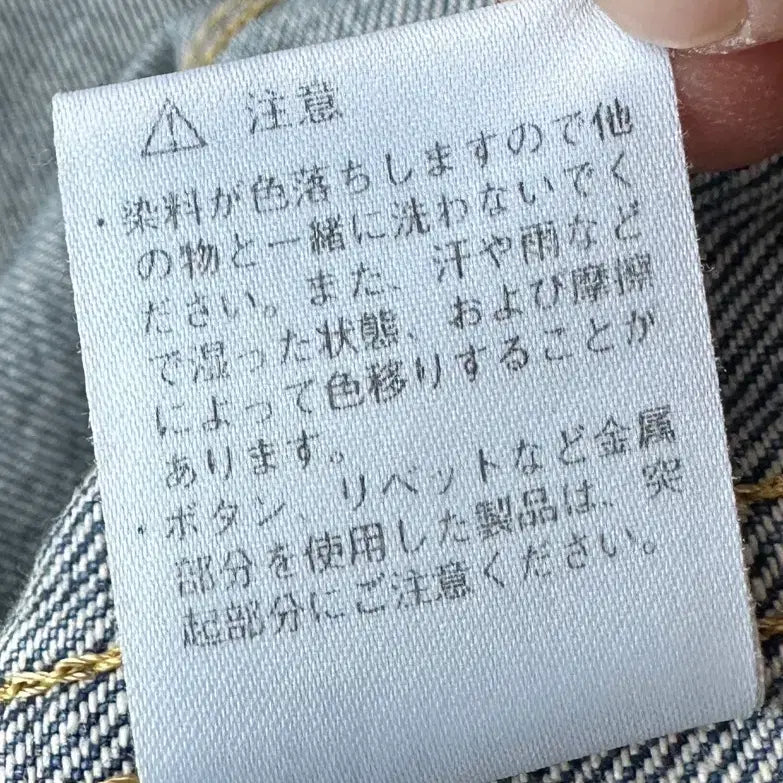 ⚠ 注意
・染料が色落ちしますので他
の物と一緒に洗わないでく
ださい。また、汗や雨など
で湿った状態、および摩擦
によって色移りすることが
あります。
・ボタン、リベットなど金属
部分を使用した製品は、突
起部分にご注意ください。